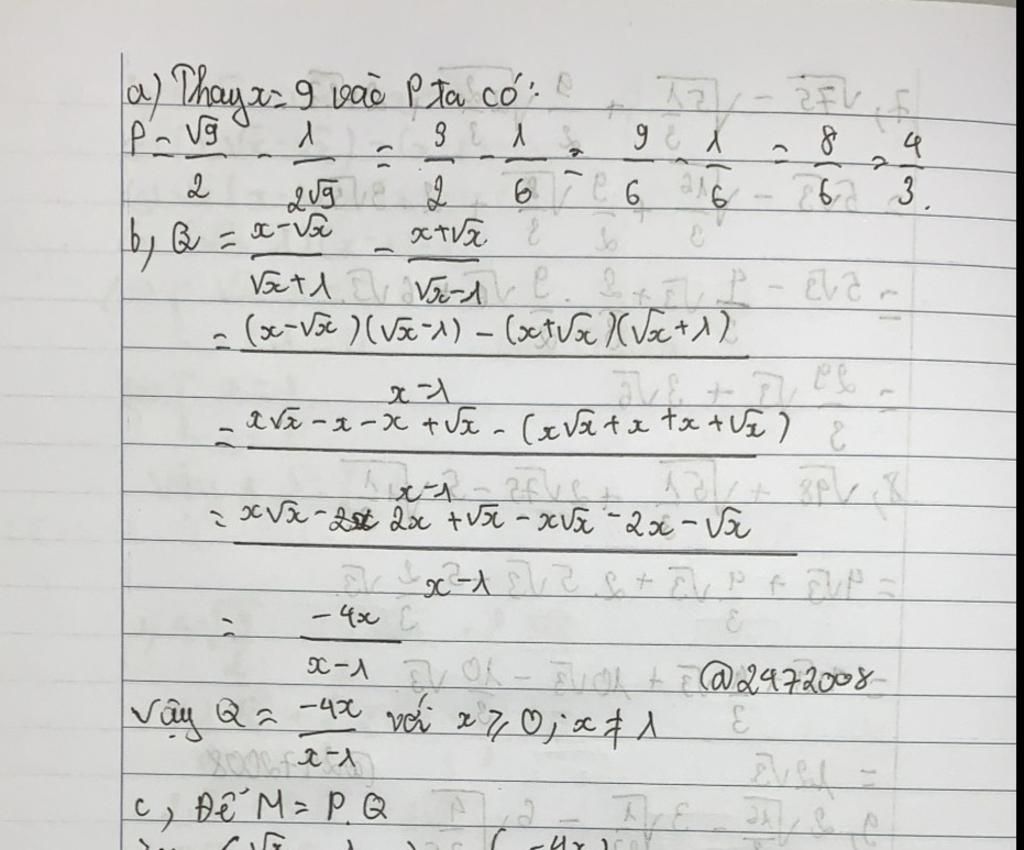 a) Thay x = 9 vào P ta có:
P = √9/2 - 1/2√9 = 3/2 - 1/6 = 9/6 - 1/6 = 8/6 = 4/3.
b, Q = x-√x/√x+1 - x+√x/√x-1
= (x-√x)(√x-1) - (x+√x)(√x+1)/x-1
= x√x - x - x + √x - (x√x + x + x + √x)/x-1
= x√x - 2x + √x - x√x - 2x - √x/x-1
= -4x/x-1
@2472008
Vậy Q = -4x/x-1 với x ≥ 0; x ≠ 1
c, Để M = P.Q